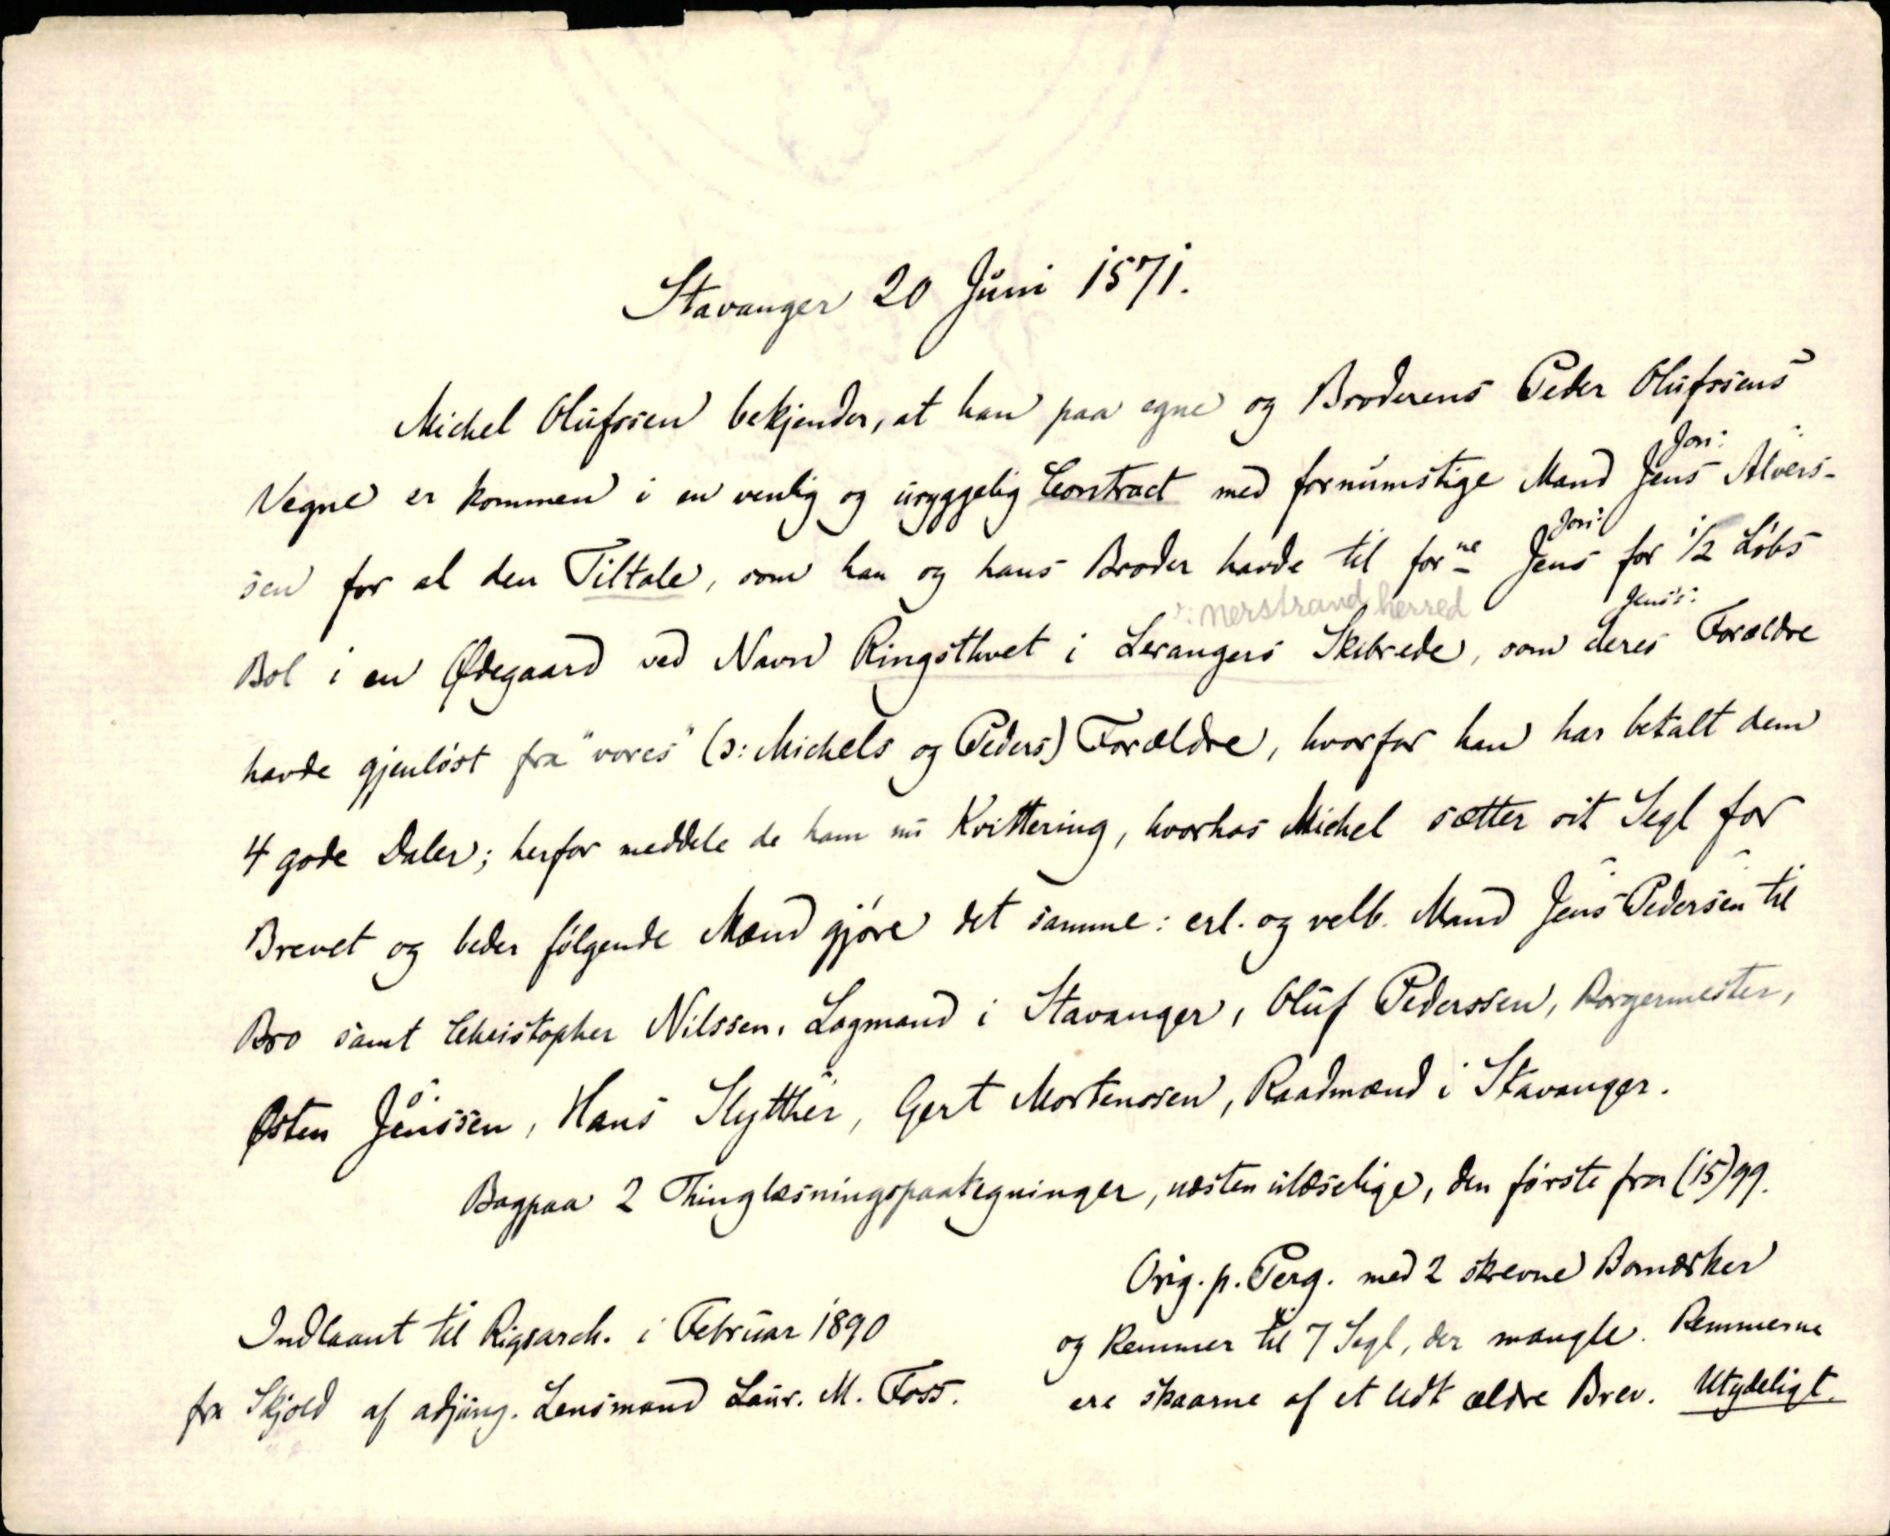 Stavanger 20 Juni 1571.
Michel Olufssen bekjender, at han paa egne og Broderens Peder Olufssens
Jon:
Vegne er kommen i en venlig og uryggelig Contract med fornumstige Mand Jens Alvers-
Jon:
sen for al den Tiltale, som han og hans Broder havde til forne Jens for 1/2 Løbs
ɔ: Nerstrand herred
Jens's:
Bol i en Ødegaard ved Navn Ringsthvet i Lerangers Skibrede, som deres Forældre
havde gjenløst fra "vores" (ɔ: Michels og Peders) Forældre, hvorfor han har betalt dem
4 gode Daler; herfor meddele de ham nu Kvittering, hvorhos Michel sætter sit Segl for
Brevet og beder følgende Mænd gjøre det samme: erl. og velb. Mand Jens Pedersen til
Bro samt Christopher Nilssen, Lagmand i Stavanger, Oluf Pederssen, Borgermester,
Østen Jönssen, Hans Skytther, Gert Mortenssen, Raadmænd i Stavanger.
Bagpaa 2 Thinglæsningspaategninger, næsten ulæselige, den første fra (15)99.
Orig. p. Perg. med 2 skrevne Bomærker
og Remmer til 7 Segl, der mangle. Remmerne
ere skaarne af et lidt ældre Brev. Utydeligt.
Indlaant til Rigsarch. i Februar 1890
fra Skjold af adjung. Lensmand Laur. M. Foss.